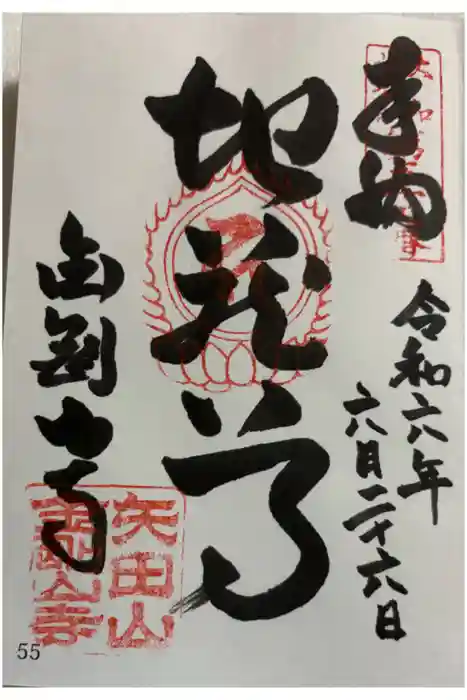 奉納
令和六年
六月二十六日
地蔵尊
金剛山寺
矢田山
金剛山寺
55